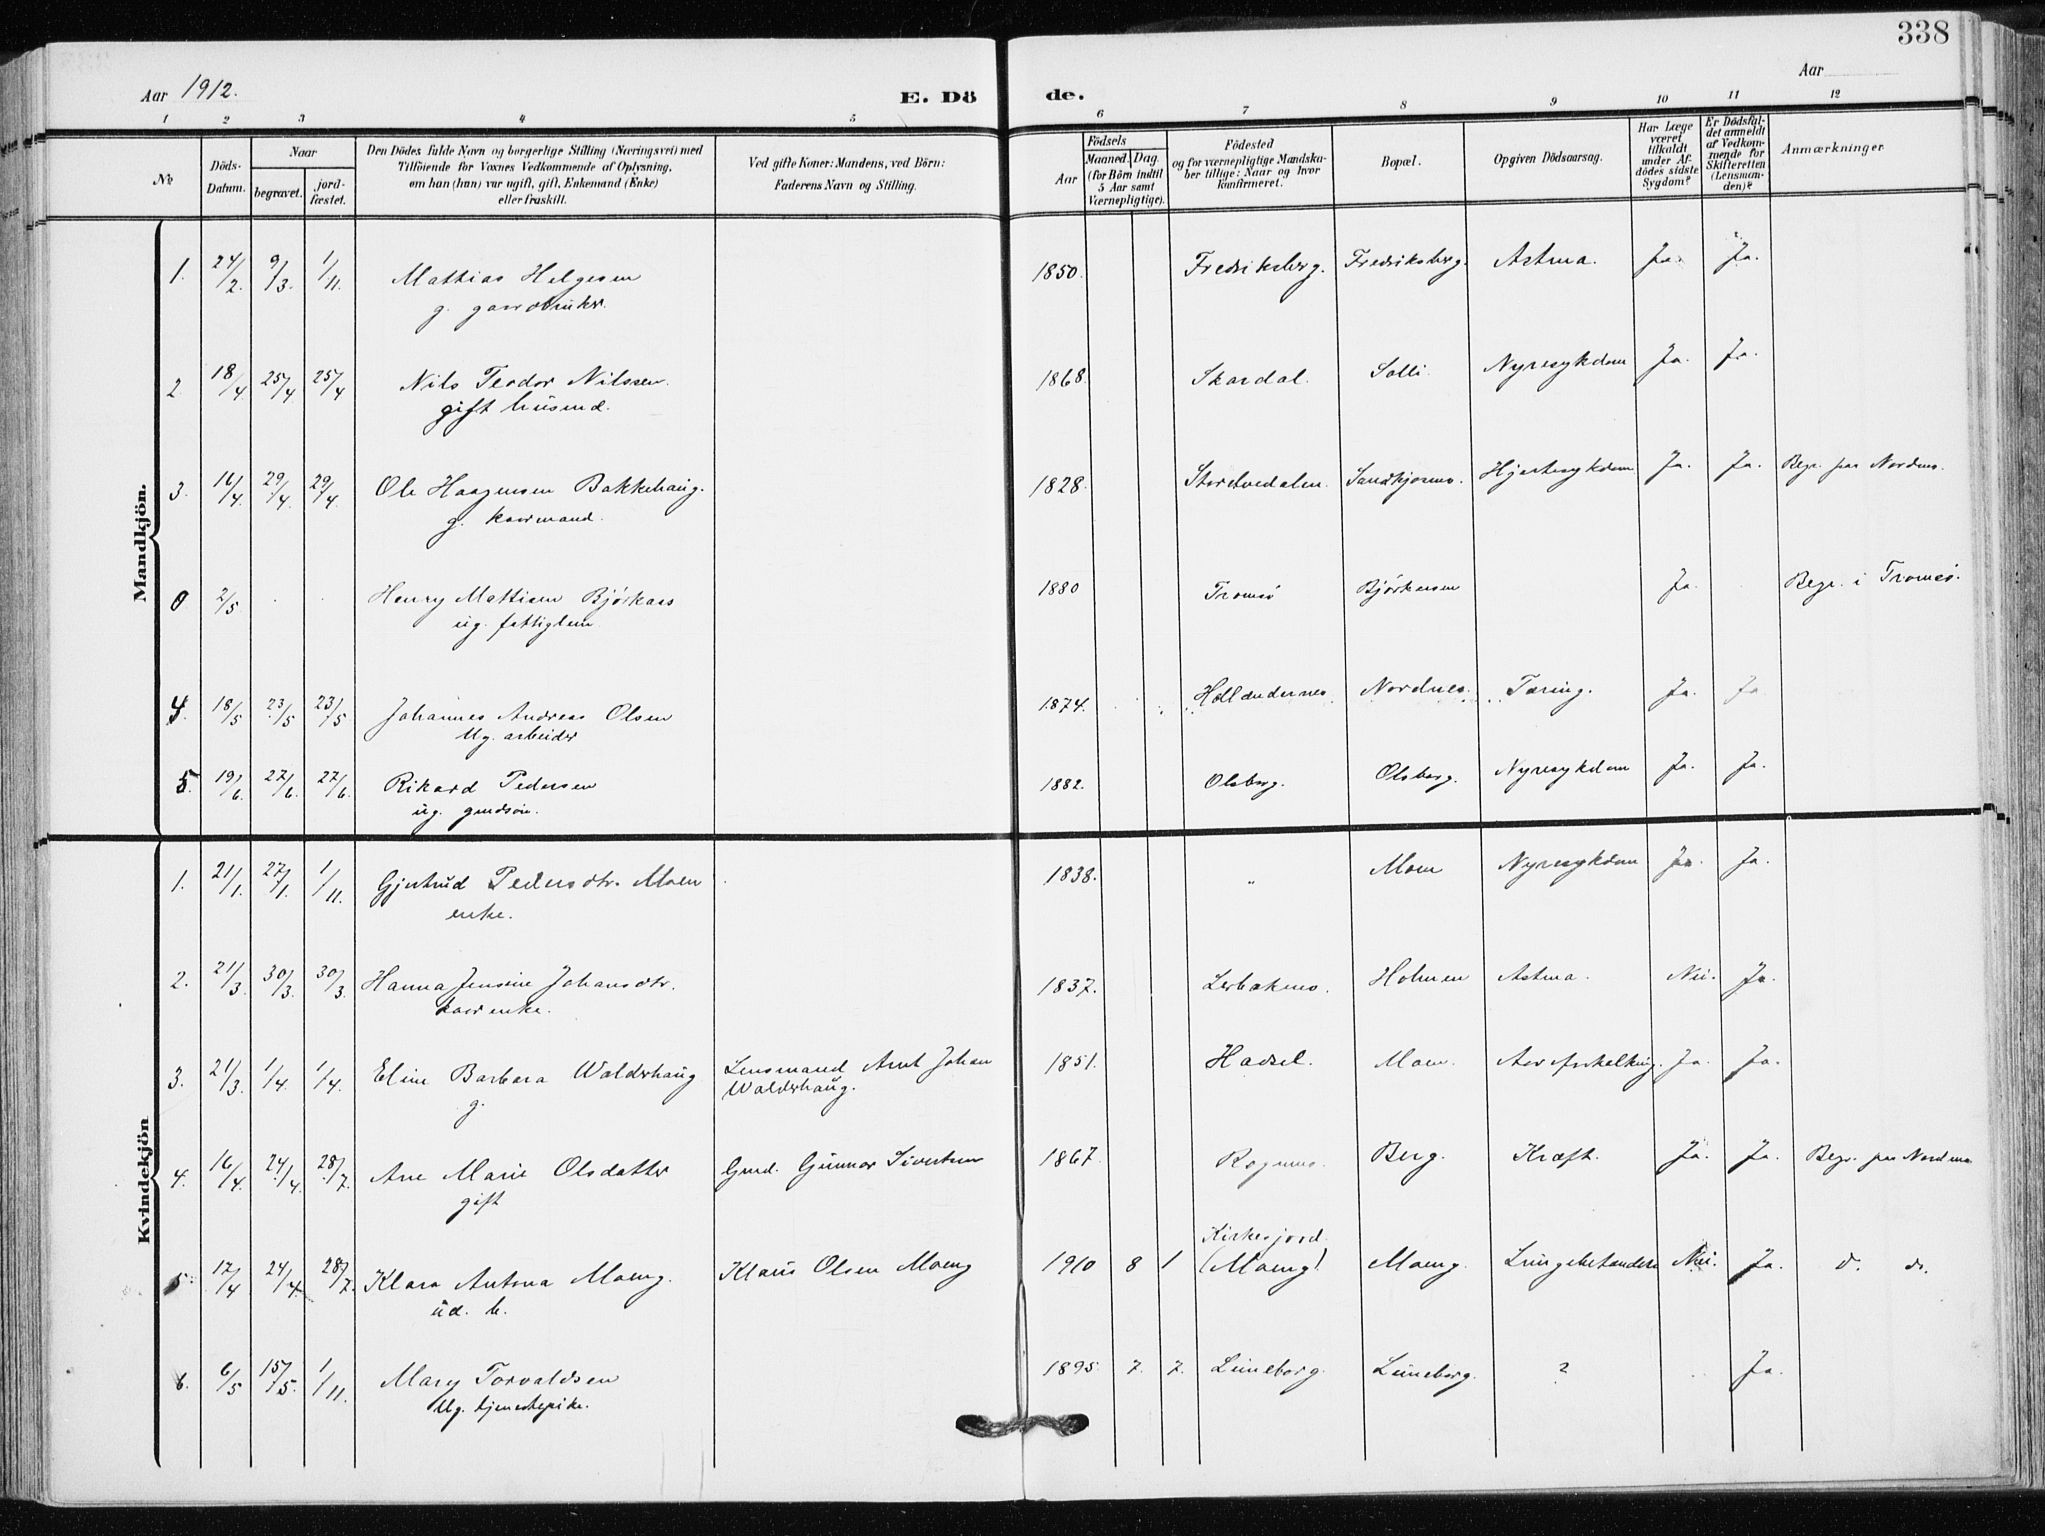 338
Aar 1912.
E. Dö
de.
Aar
1 2 3 4 5 6 7 8 9 10 11 12
№
Döds-Datum.
Naar
begravet.
jord-fæstet.
Den Dödes fulde Navn og borgerlige Stilling (Næringsvei) med
Tilföiende for Voxnes Vedkommende af Oplysning,
om han (hun) var ugift, gift, Enkemand (Enke)
eller fraskilt.
Ved gifte Koner: Mandens, ved Börn:
Faderens Navn og Stilling.
Födsels
Aar
Maaned. Dag.
(for Börn indtil
5 Aar samt
Værnepligtige).
Födested
og for værnepligtige Mandska-
ber tillige: Naar og hvor
konfirmeret.
Bopæl.
Opgiven Dödsaarsag.
Har Læge
været
tilkaldt
under Af-
dödes sidste
Sygdom?
Er Dödsfal-
det anmeldt
af Vedkom-
mende for
Skifteretten
(Lensman-
den)?
Anmærkninger
Mandkjön.
1. 24/2 9/3. 1/11. Mattias Helgesen 1850. Fredriksberg. Fredriksberg. Astma. Ja. Ja.
g. gaardbruker.
2. 18/4 25/4 25/4 Nils Teodor Nilssen. 1868. Skardal. Solli. Nyresykdom Ja. Ja.
gift husmd.
3. 16/4. 29/4 29/4. Ole Haagensen Bakkehaug. 1828. Storslvedalen. Hjertesykdom Ja. Ja. Begr. paa Nordnes.
g. kaarmand.
0 2/5 Henry Mattisen Bjørkaas 1880 Tromsø Ja. Begr. i Tromsø.
ug. fattiglem
4. 18/5 23/5 23/5 Johannes Andreas Olsen 1874. Hollændernes Nordnes. Tæring. Ja. Ja.
Ug. arbeider
5. 19/6. 27/6. 27/6. Rikard Pedersen 1882. Olsborg. Olsborg. Nyresykdom Ja. Ja.
ug. gmdsøn.
Kvindekjön
1. 21/1. 27/1. 1/11. Gjertrud Pedersdtr. Moen 1838. " Moen Nyresykdom Ja. Ja.
enke.
2. 21/3. 30/3. 30/3. Hanna Jensine Johansdtr. 1837. Holmen Astma. Nei. Ja.
kaarenke.
3. 21/3. 1/4. 1/4. Eline Barbara Walderhaug Lensmand Arnt Johan 1851. Hadsel. Moen. Ja. Ja.
g. Walderhaug.
4. 16/4 24/4 28/7. Ane Marie Olsdatter Gmd. Gunnar Sivertsen 1867. Rognmo. Berg. Kræft. Ja. Ja. Begr. paa Nordmo
gift
Kirkesjord
5. 17/4 24/4. 28/7. Klara Antona Moeng. Klaus Olsen Moeng 1910 8 1 (Moeng) Moeng. Lungebetændelse Nei. Ja. d. do.
ud. b.
6. 6/5 15/5. 1/11. Mary Torvaldsen 1895. 7. 7. Luneborg. Luneborg. ? Ja.
Ug. tjenestepike.